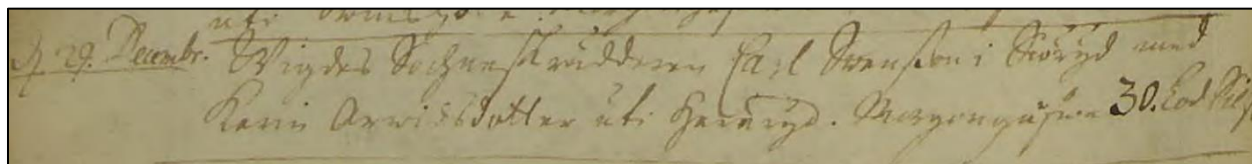 d. 29. Decembr. Wigdes Sochneskrädderen Carl Svensson i Siöryd med
Karin Arvidsdotter uti Heneryd. Morgongåfwan 30. Lod Silf